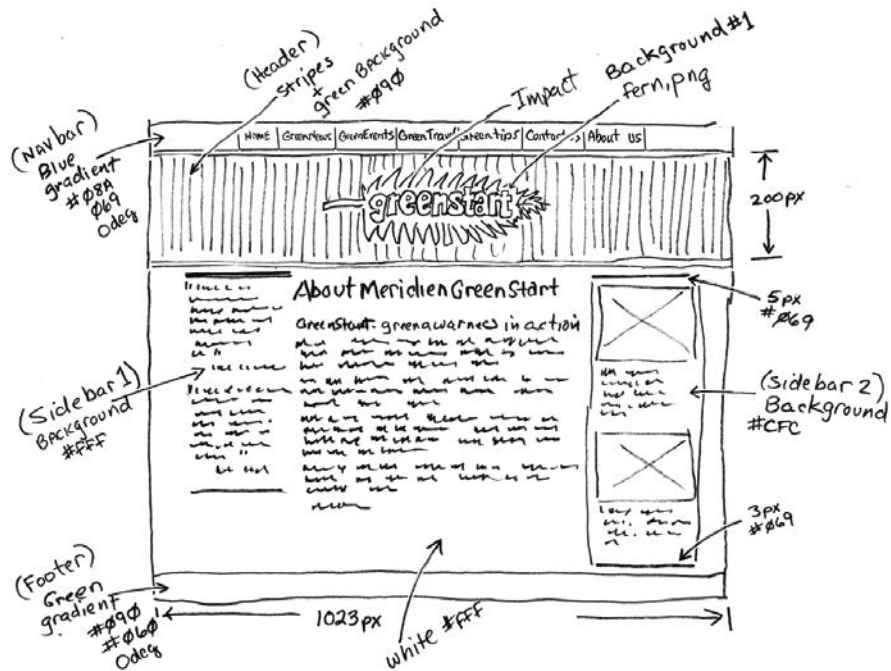 (Header)
Stripes
+
green Background
#090
Impact
Background #1
fern.png
(Navbar)
Blue
gradient
#08A
069
0deg
HOME
GreenNews
GreenEvents
GreenTravel
Green tips
Contact us
About us
greenstart
200px
About Meridien GreenStart
GreenStart: green awarness in action
5px
#069
(Sidebar 1)
Background
#fff
(Sidebar 2)
Background
#CFC
3px
#069
(Footer)
Green
gradient
#090
#060
0deg
1023px
white #fff